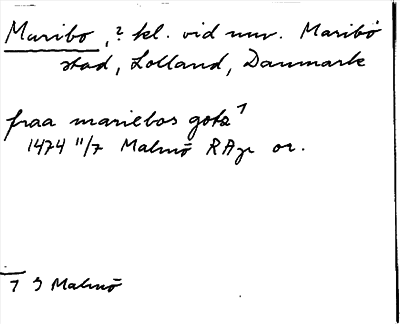 Maribo, ? kl. vid nuv. Maribo
stad, Lolland, Danmark
fraa mariebos gota 1
1474 11/7 Malmö RApr or.
1 I Malmö